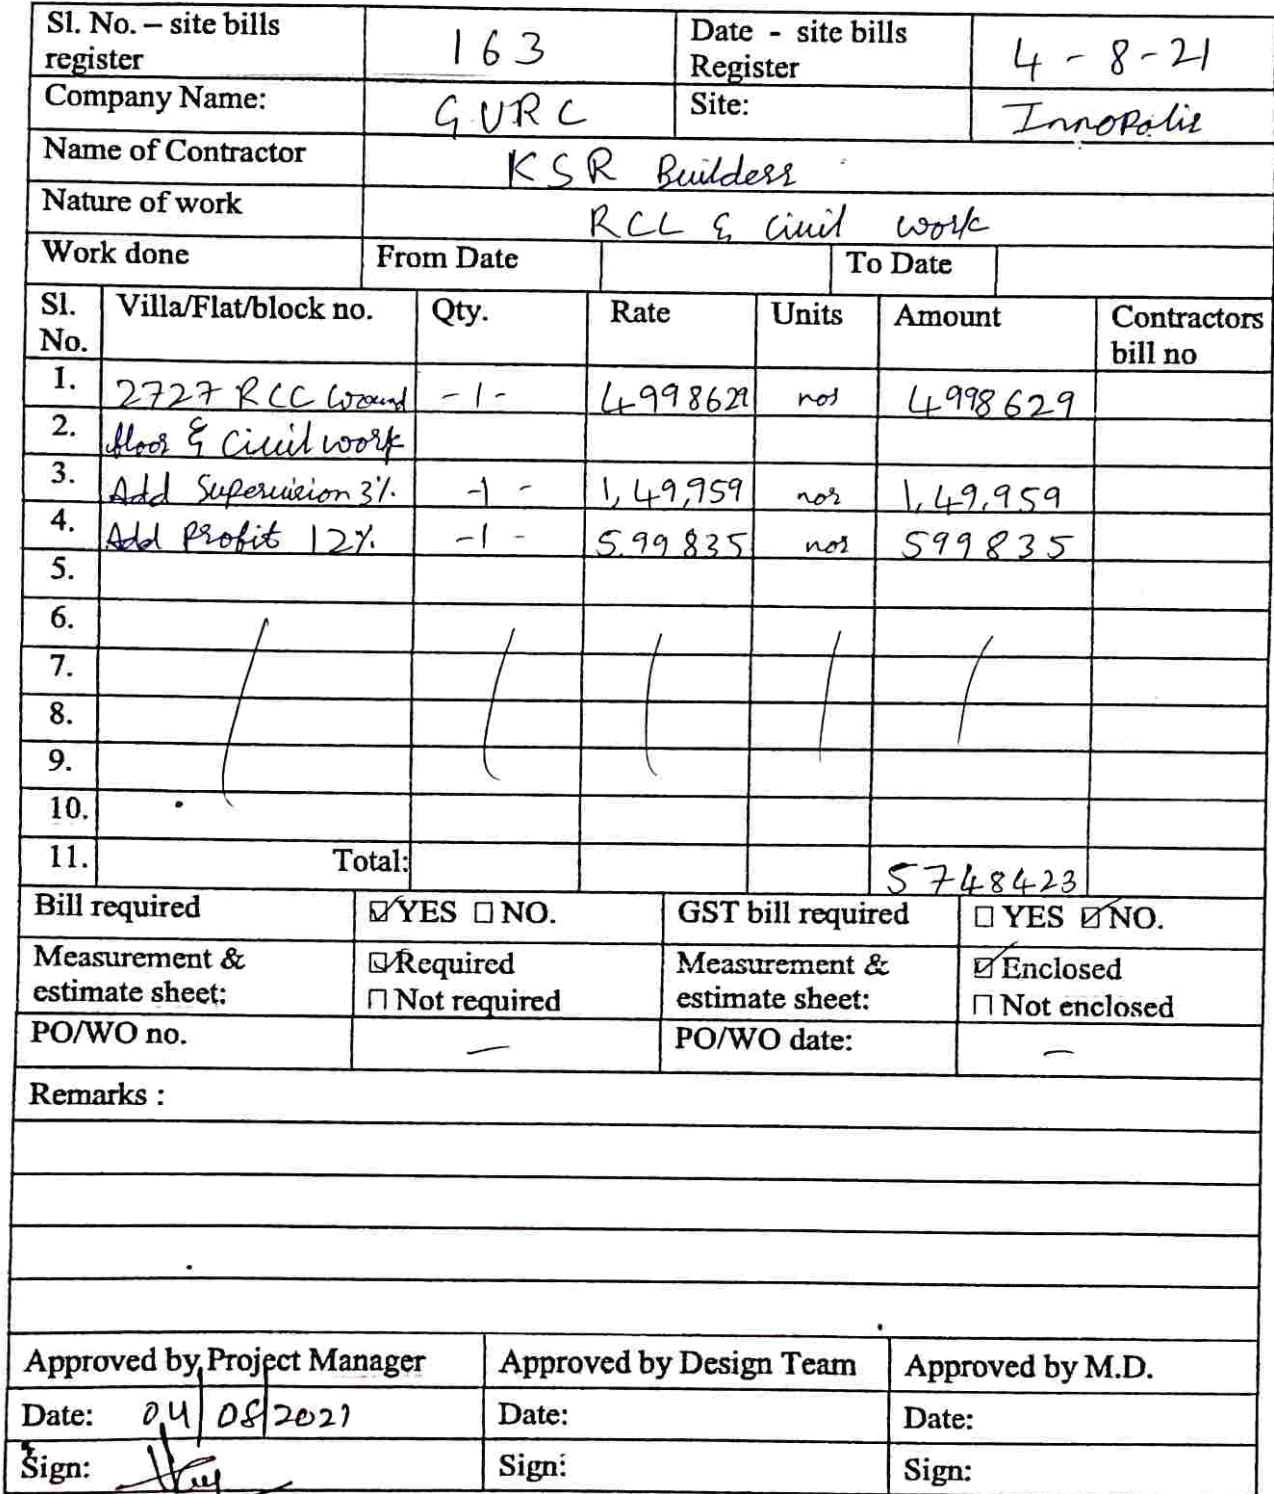 Sl. No. – site bills register 163 Date - site bills Register 4-8-21
Company Name: GVRC Site: Innopolis
Name of Contractor KSR Builders
Nature of work RCC & Civil work
Work done From Date To Date
Sl. No. Villa/Flat/block no. Qty. Rate Units Amount Contractors bill no
1. 2727 RCC Ground -1- 4998629 nos 4998629
2. floor & Civil work
3. Add Supervision 3% -1- 1,49,959 nos 1,49,959
4. Add Profit 12% -1- 5.99835 nos 599835
5.
6.
7.
8.
9.
10.
11. Total: 5748423
Bill required ☑YES ☐NO. GST bill required ☐YES ☑NO.
Measurement & estimate sheet: ☑Required ☐Not required Measurement & estimate sheet: ☑Enclosed ☐Not enclosed
PO/WO no. — PO/WO date: —
Remarks :
Approved by Project Manager Approved by Design Team Approved by M.D.
Date: 04/08/2021 Date: Date:
Sign: Sign: Sign: